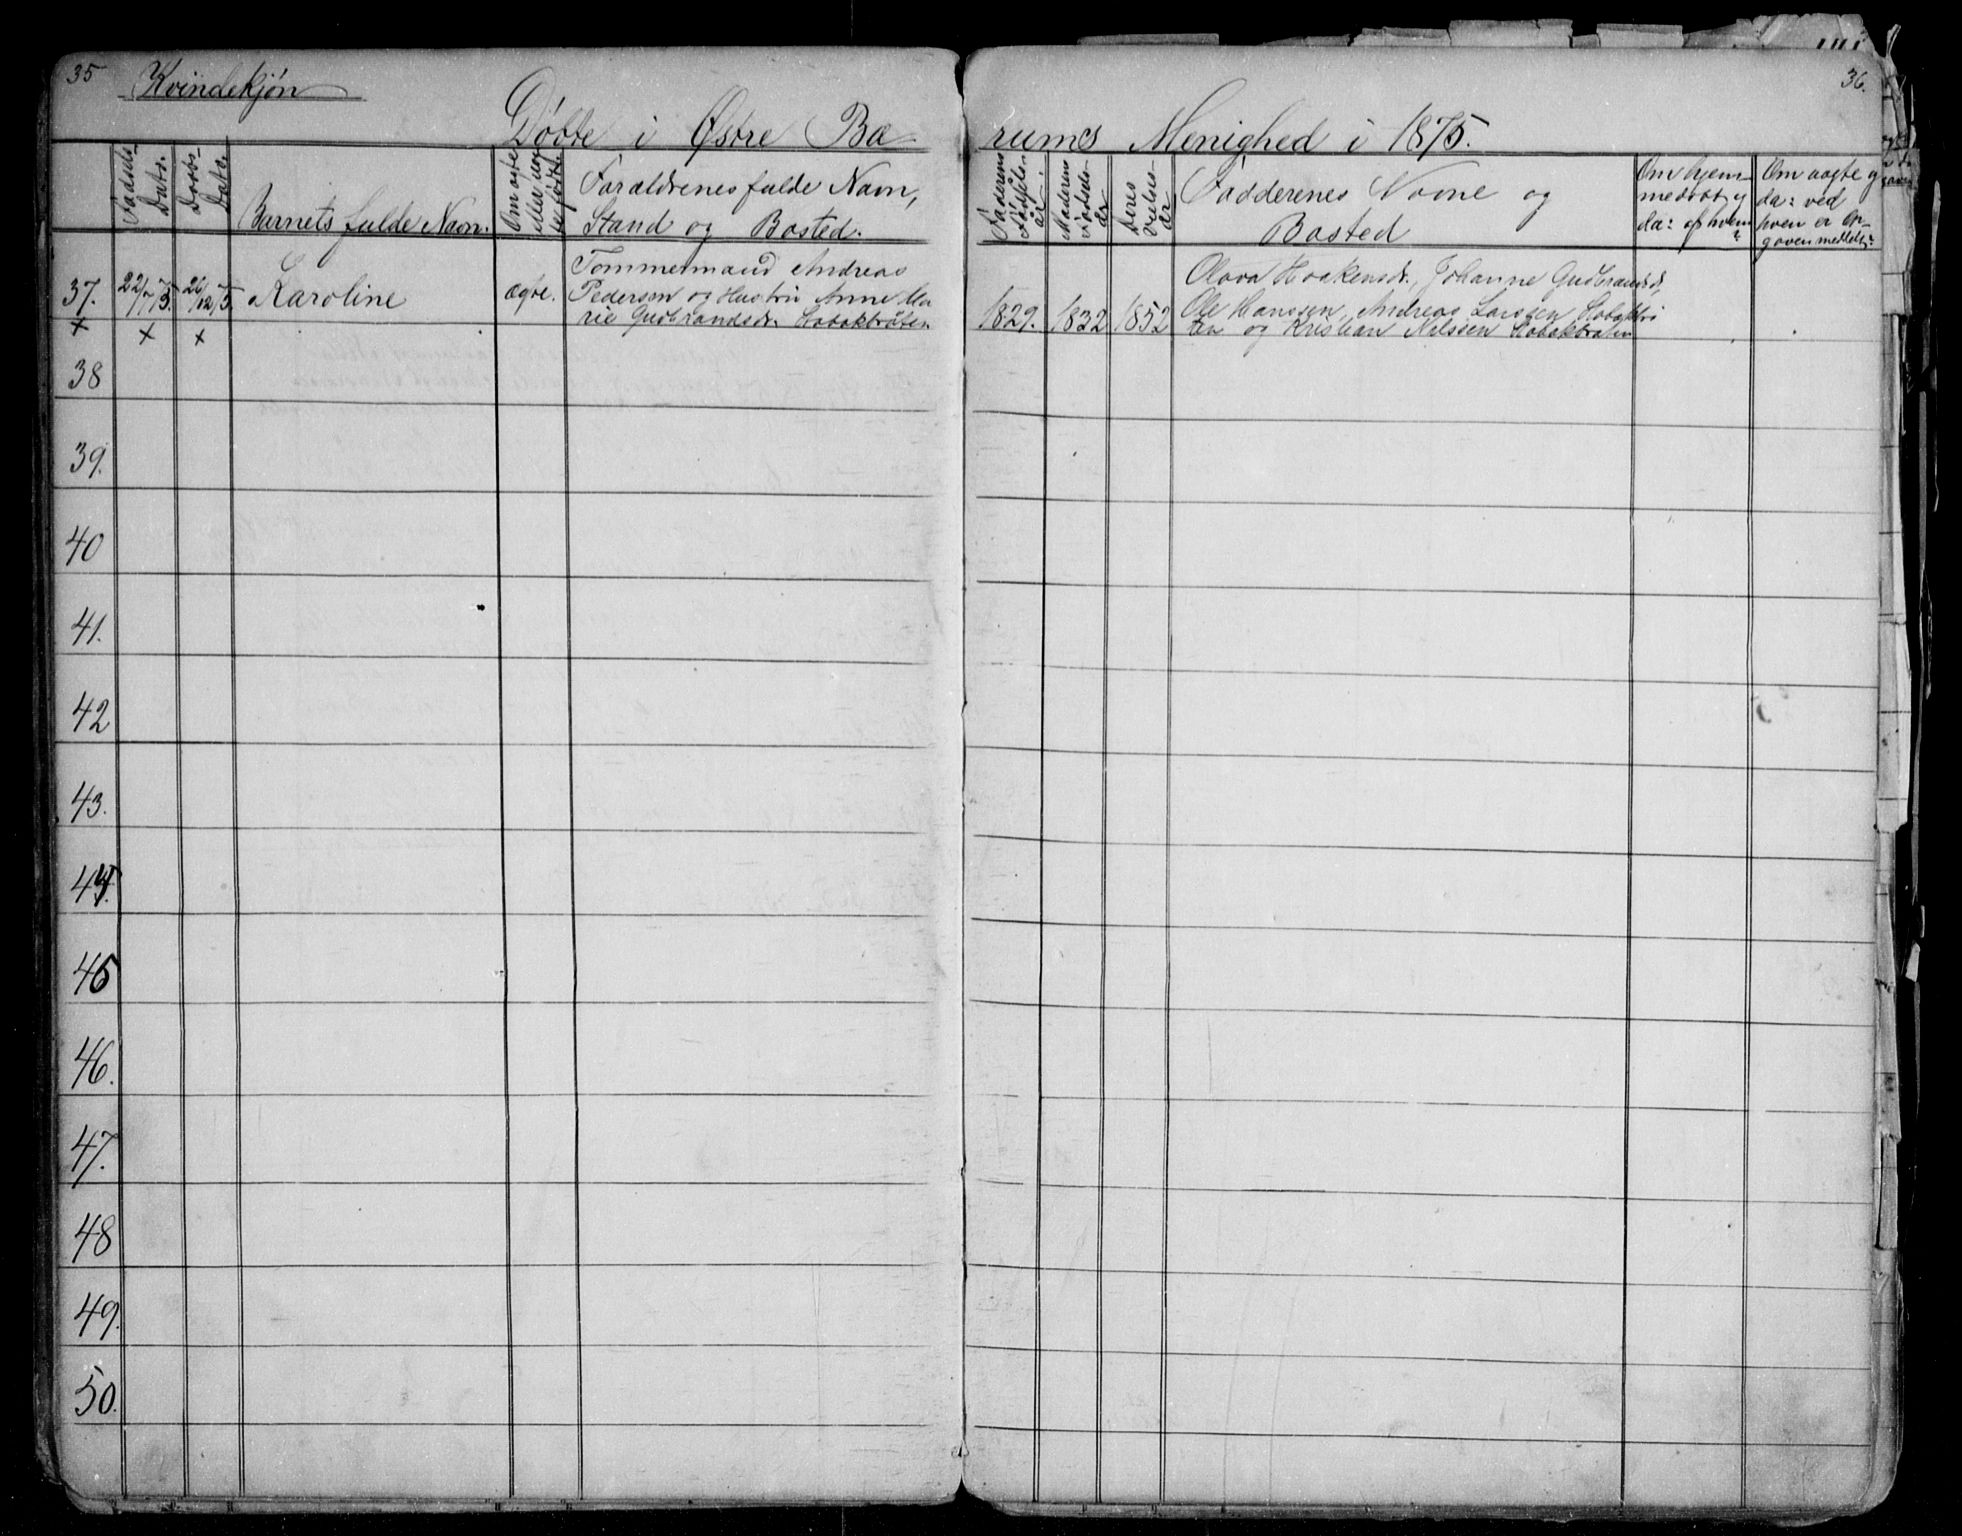 35
36.
Kvindekjøn
Døbte i Østre Bæ rums Menighed i 1875.
Fødsels Dato.
Daabs Dato.
Barnets fulde Navn.
Om ægte eller uægte født.
Forældrenes fulde Navn,
Stand og Bosted.
Faderens Fødsels- år.
Moderens Fødsels- år
Deres Vielses- år
Fadderenes Navne og
Bosted
Om hjem-
medøbt og
da: af hvem?
Om uægte
da: ved
hven er Op-
gaven meddelt?
37. 22/ 75. 26/12 75. Karoline ægte.
Tommermand Andreas
Pedersen og Hustru Anne Ma
rie Gudbrandsdr.
1829. 1832 1852
Haakensdr., Johanne Gudbrandsd,
Ole Hanssen, Andreas Larsen
en og Kristian Nilssen
x x x
38
39.
40
41.
42
43.
44.
45
46.
47.
48
49.
50.